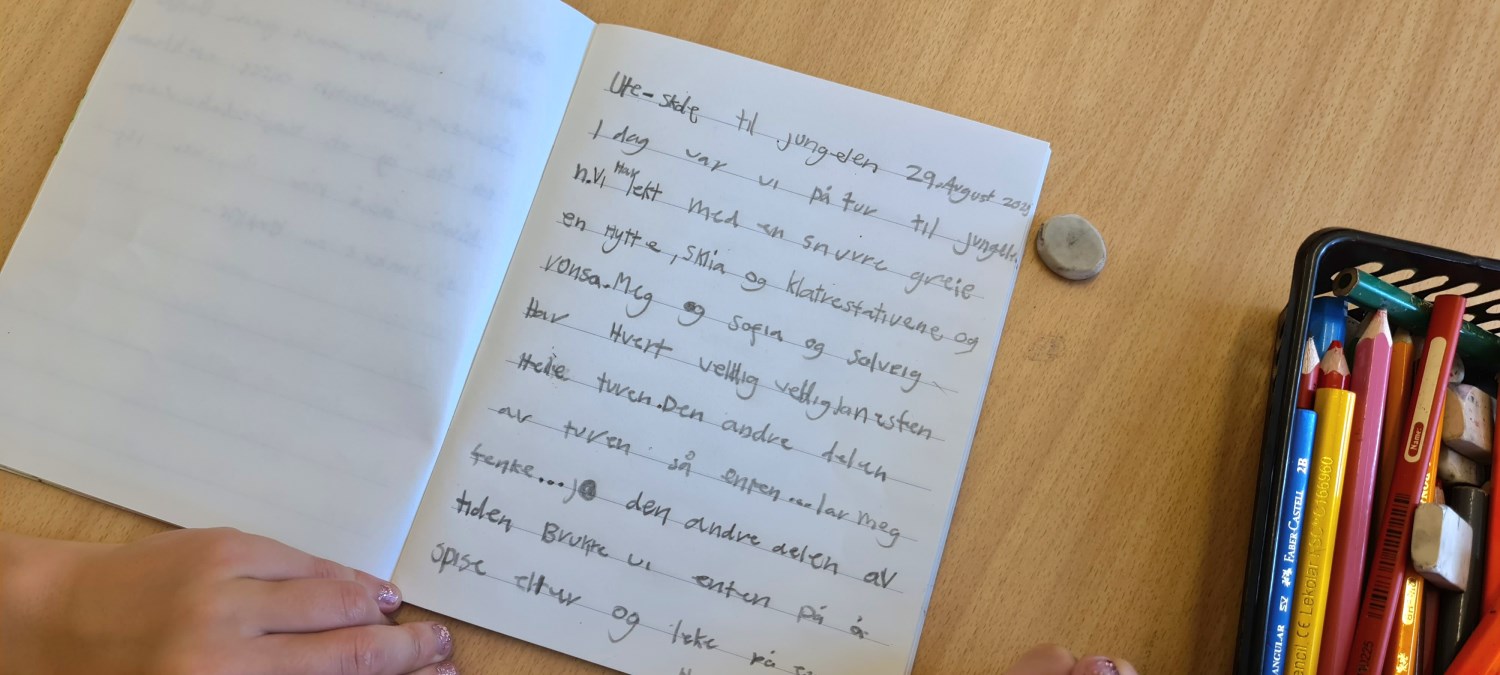 Ute-skole til jungelen 29. August 202
I dag var vi på tur til jungele
n. Vi Har lekt med en snurre greie
en Hytte, sklia og klatrestativene og
ronsa. Meg og sofia og solveig
Har Hvert veldig veldig lan esten
Hele turen. Den andre delen
av turen så enten... lar meg
tenke... jo den andre delen av
tiden Brukte vi enten på å
spise eller og leke på
FABER-CASTELL 2B
ANGULAR
encil CE Lekolar 166960
Name: